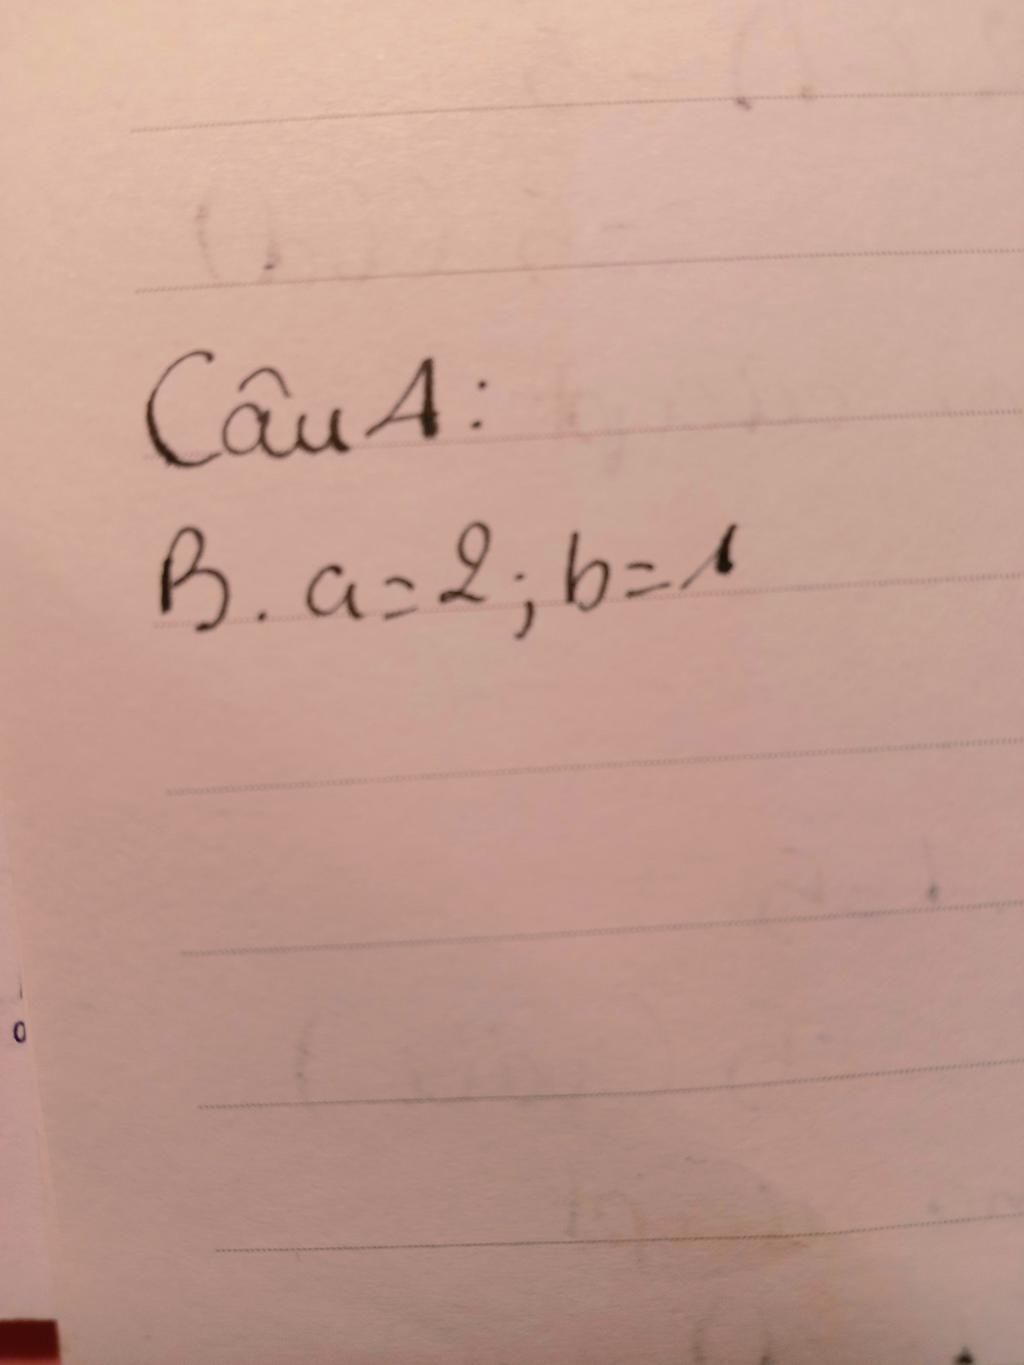 Câu 1:
B. a=2; b=1
0